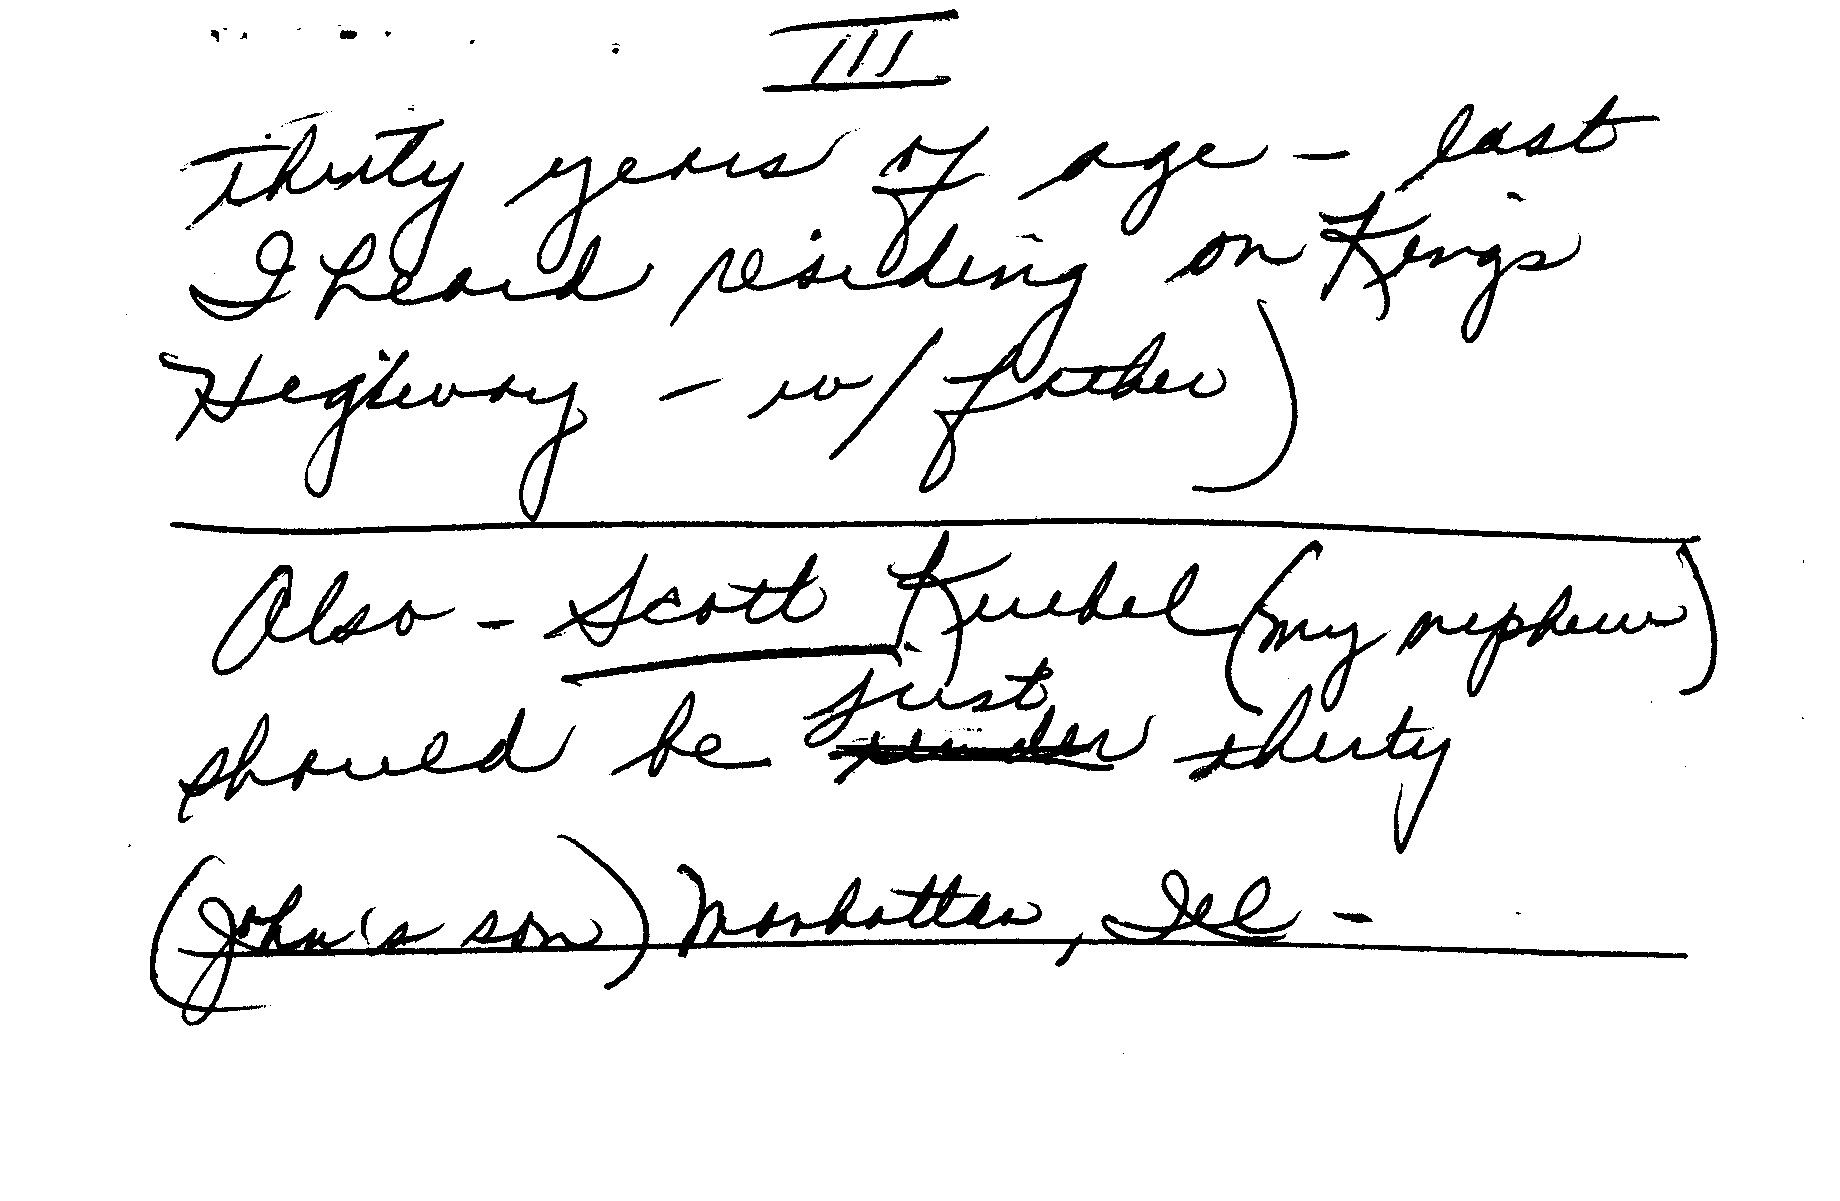 III
thirty years of age - last
I heard residing on Kings
Highway - w/ father)
Also - Scott Kuebel (my nephew)
just
should be under thirty
(John's son) Manhattan, Ill -